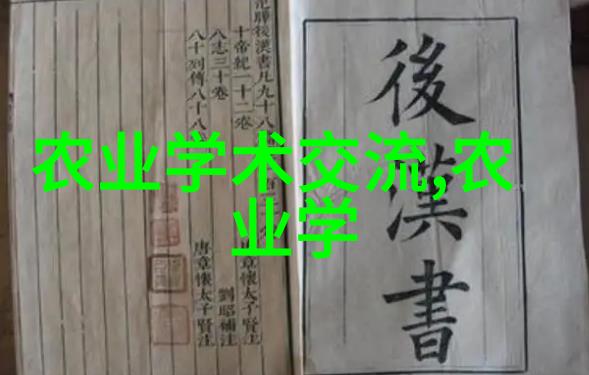 农业学术交流,农
业学
後漢書
曄後漢書凡九十八
十帝紀一十二卷
章懷太子賢注
八志三十卷
劉昭補注
八十列傳八十八
唐章懷太子賢注